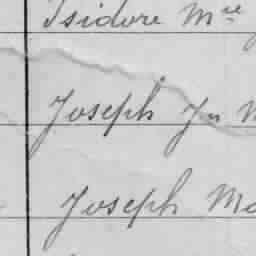 Isidore Mce
Joseph Jn M
Joseph Mc